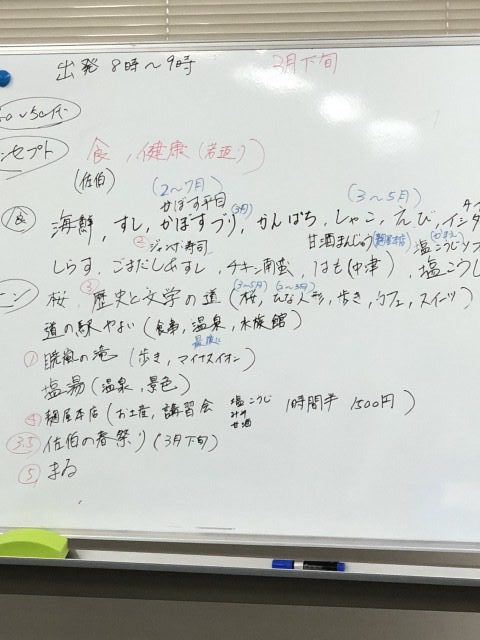 出発 8時〜9時 3月下旬
セプト 食, 健康 (若返り)
(佐伯) (2〜7月) (3〜5月)
かぼす平目
食 海鮮, すし, かぼすブリ (3月), かんぱち, しゃこ, えび, イシダ
② ジャンボ寿司 甘酒まんじゅう(麹屋本店) 塩こうじソフ
しらす, ごまだしあすし, チキン南蛮, はも(中津), 塩こうじ
桜, ③ 歴史と文学の道 (桜, ひな人形, 歩き, カフェ, スイーツ)
(3〜5月) (2〜3月)
道の駅 やよい (食事, 温泉, 水族館)
最後に
① 暁嵐の滝 (歩き, マイナスイオン)
塩湯 (温泉, 景色)
④ 麹屋本店 (お土産, 講習会 塩こうじ みそ 甘酒 1時間半 1500円)
3.5 佐伯の春祭り (3月下旬)
⑤ まる